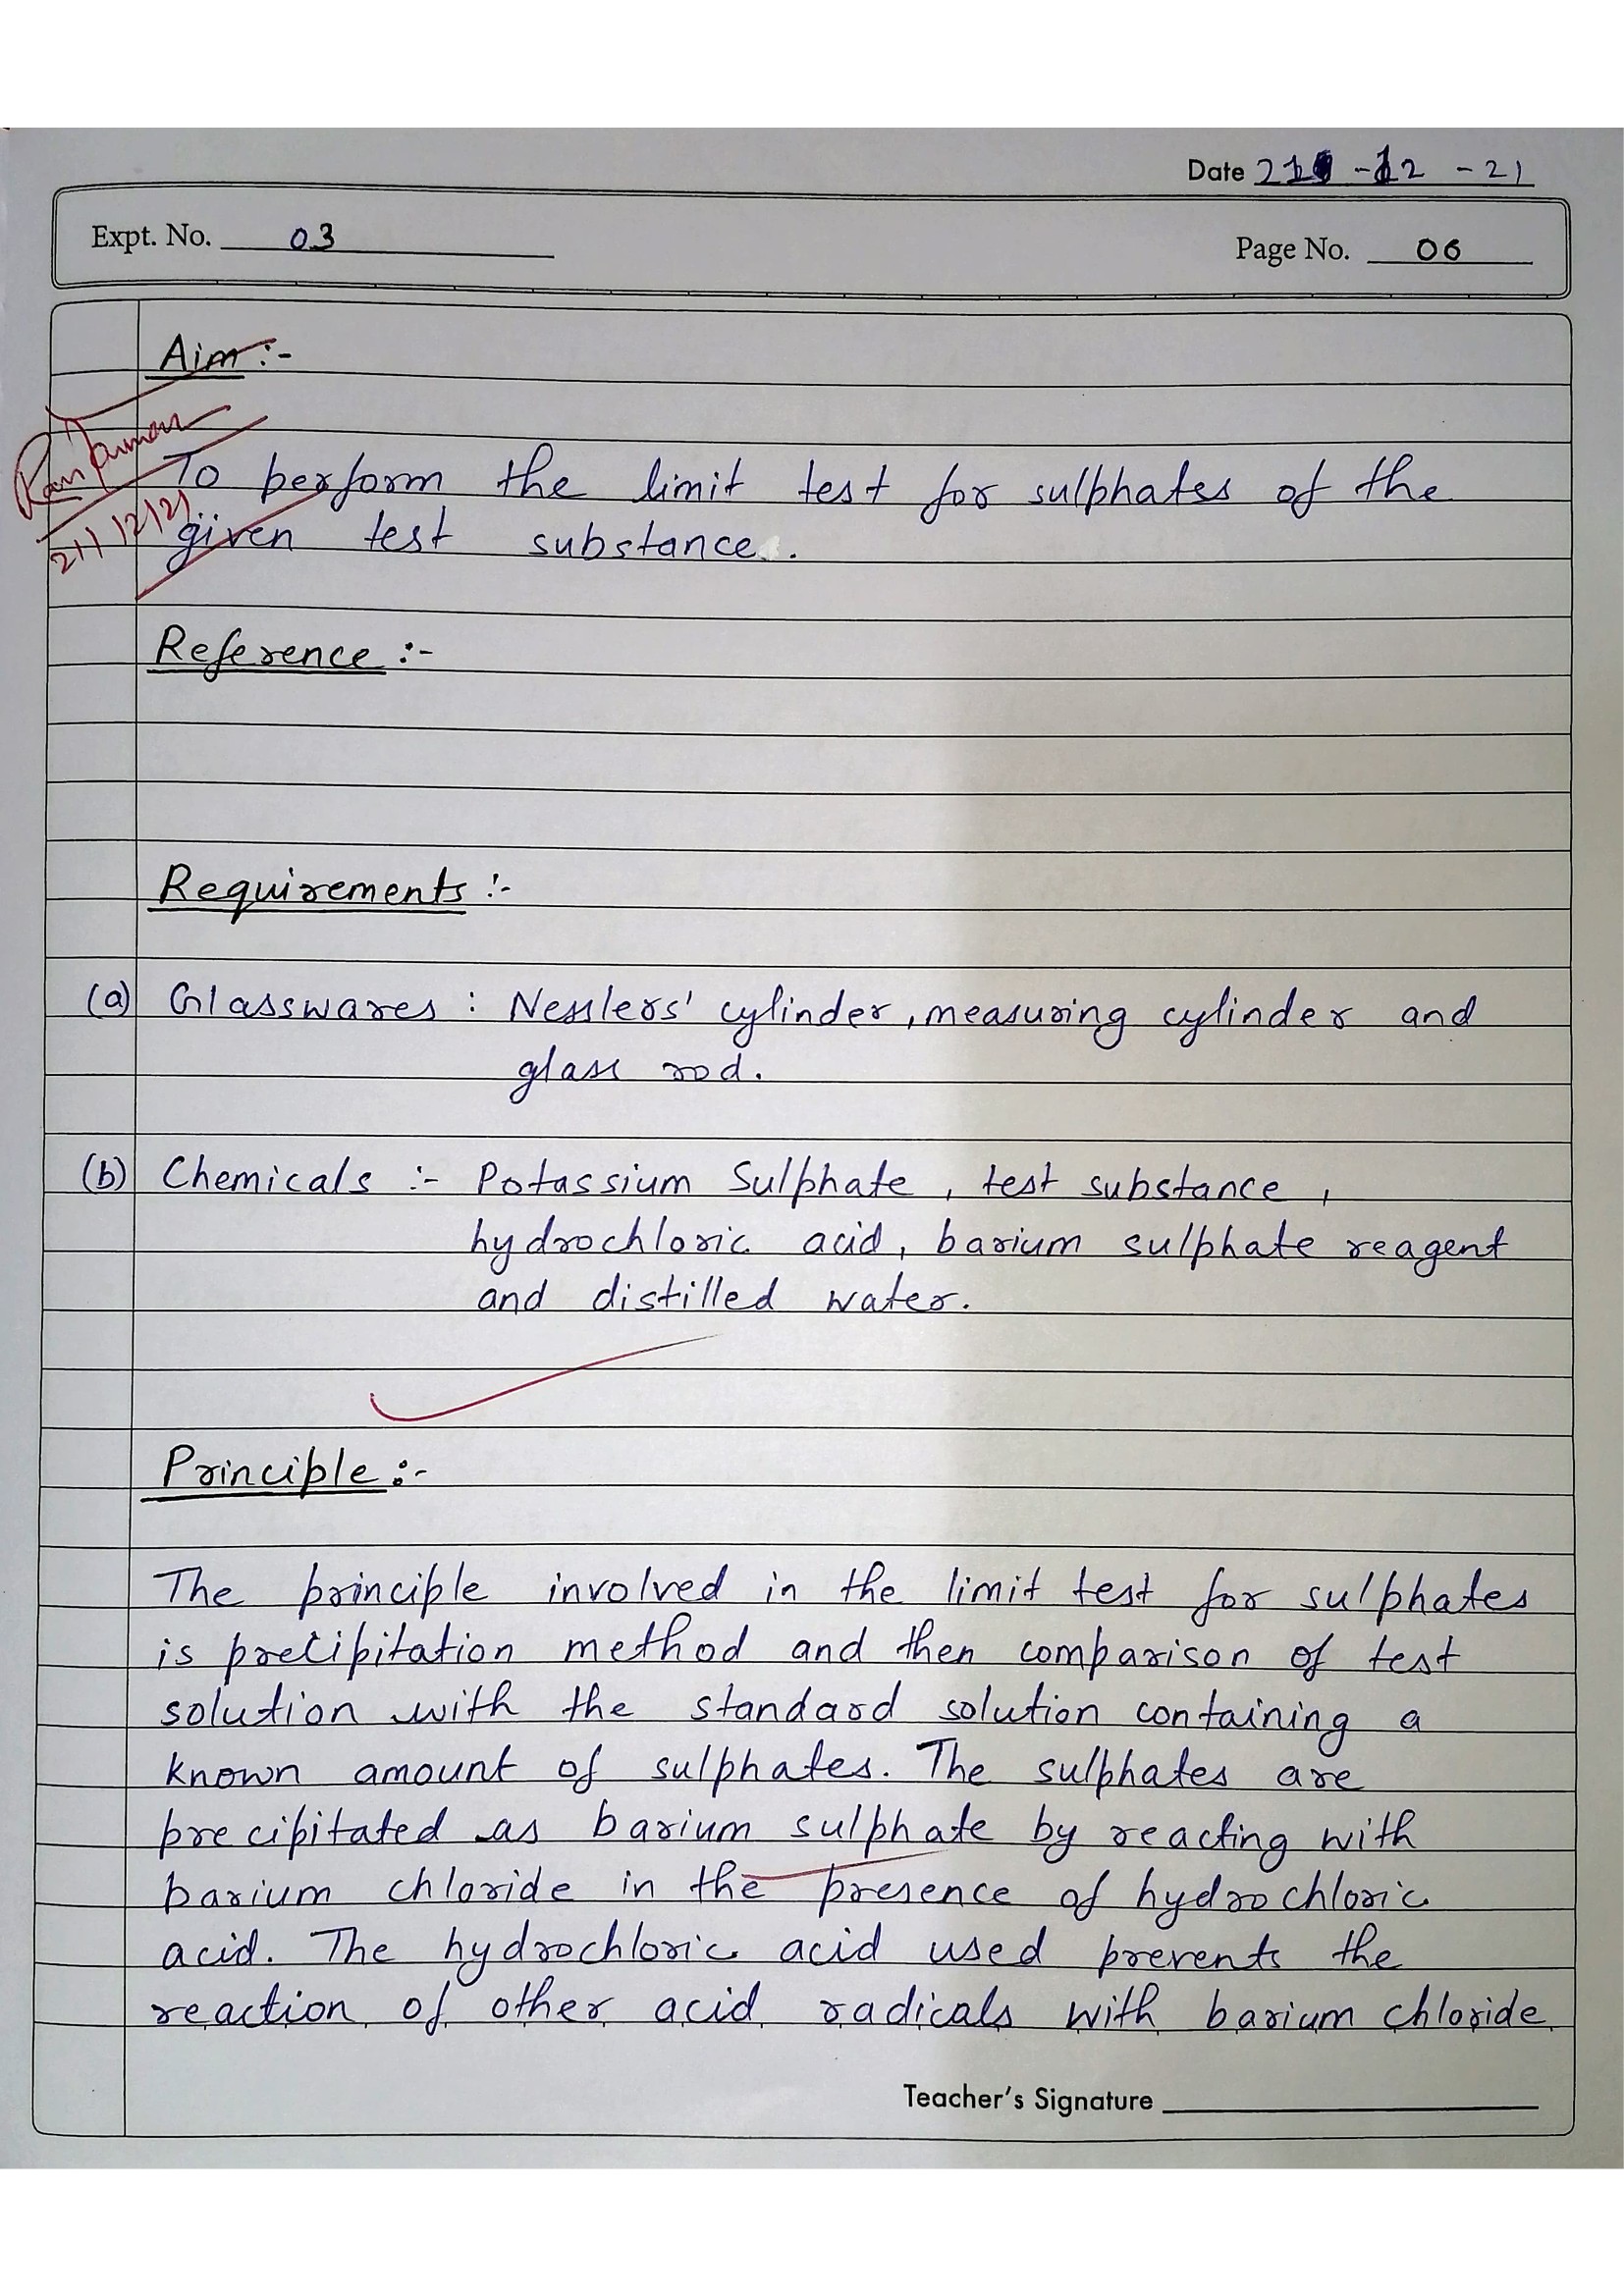 Date 21 -12 -21
Expt. No. 03
Page No. 06
Aim :-
To perform the limit test for sulphates of the
given test substance.
21/12/21
Reference :-
Requirements :-
(a) Glasswares : Nesslers' cylinder, measuring cylinder and
glass rod.
(b) Chemicals :- Potassium Sulphate, test substance,
hydrochloric acid, barium sulphate reagent
and distilled water.
Principle :-
The principle involved in the limit test for sulphates
is precipitation method and then comparison of test
solution with the standard solution containing a
known amount of sulphates. The sulphates are
precipitated as barium sulphate by reacting with
barium chloride in the presence of hydrochloric
acid. The hydrochloric acid used prevents the
reaction of other acid radicals with barium chloride
Teacher's Signature